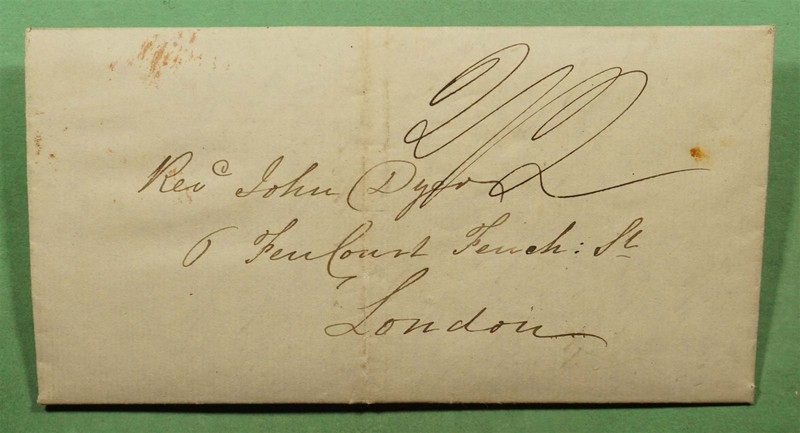 2/2
Revd John Dyer
6 Fen Court Fench: St
London